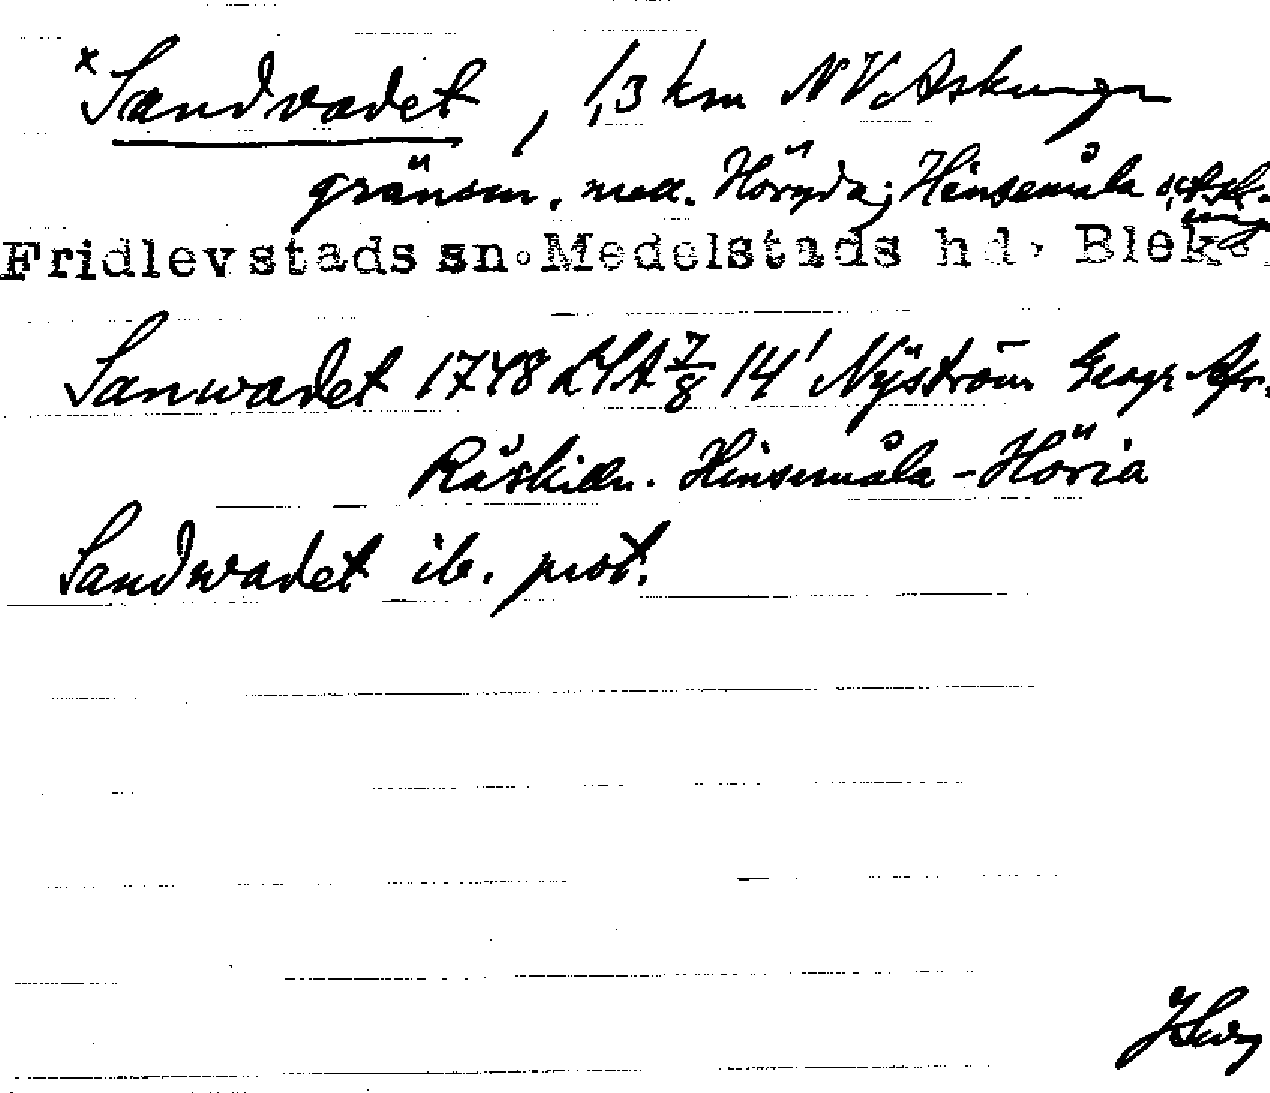 *Sandvadet, 1,3 km NV Askunga
gränsm. mell. Höryda, Hinsemåla o.
Fridlevstads sn. Medelstads hd, Blek.
Sanwadet 1748 LSA 7/8 14' Nyström Geogr Afr.
Råskilln. Hinsemåla - Höria
Sandwadet ib. prot.